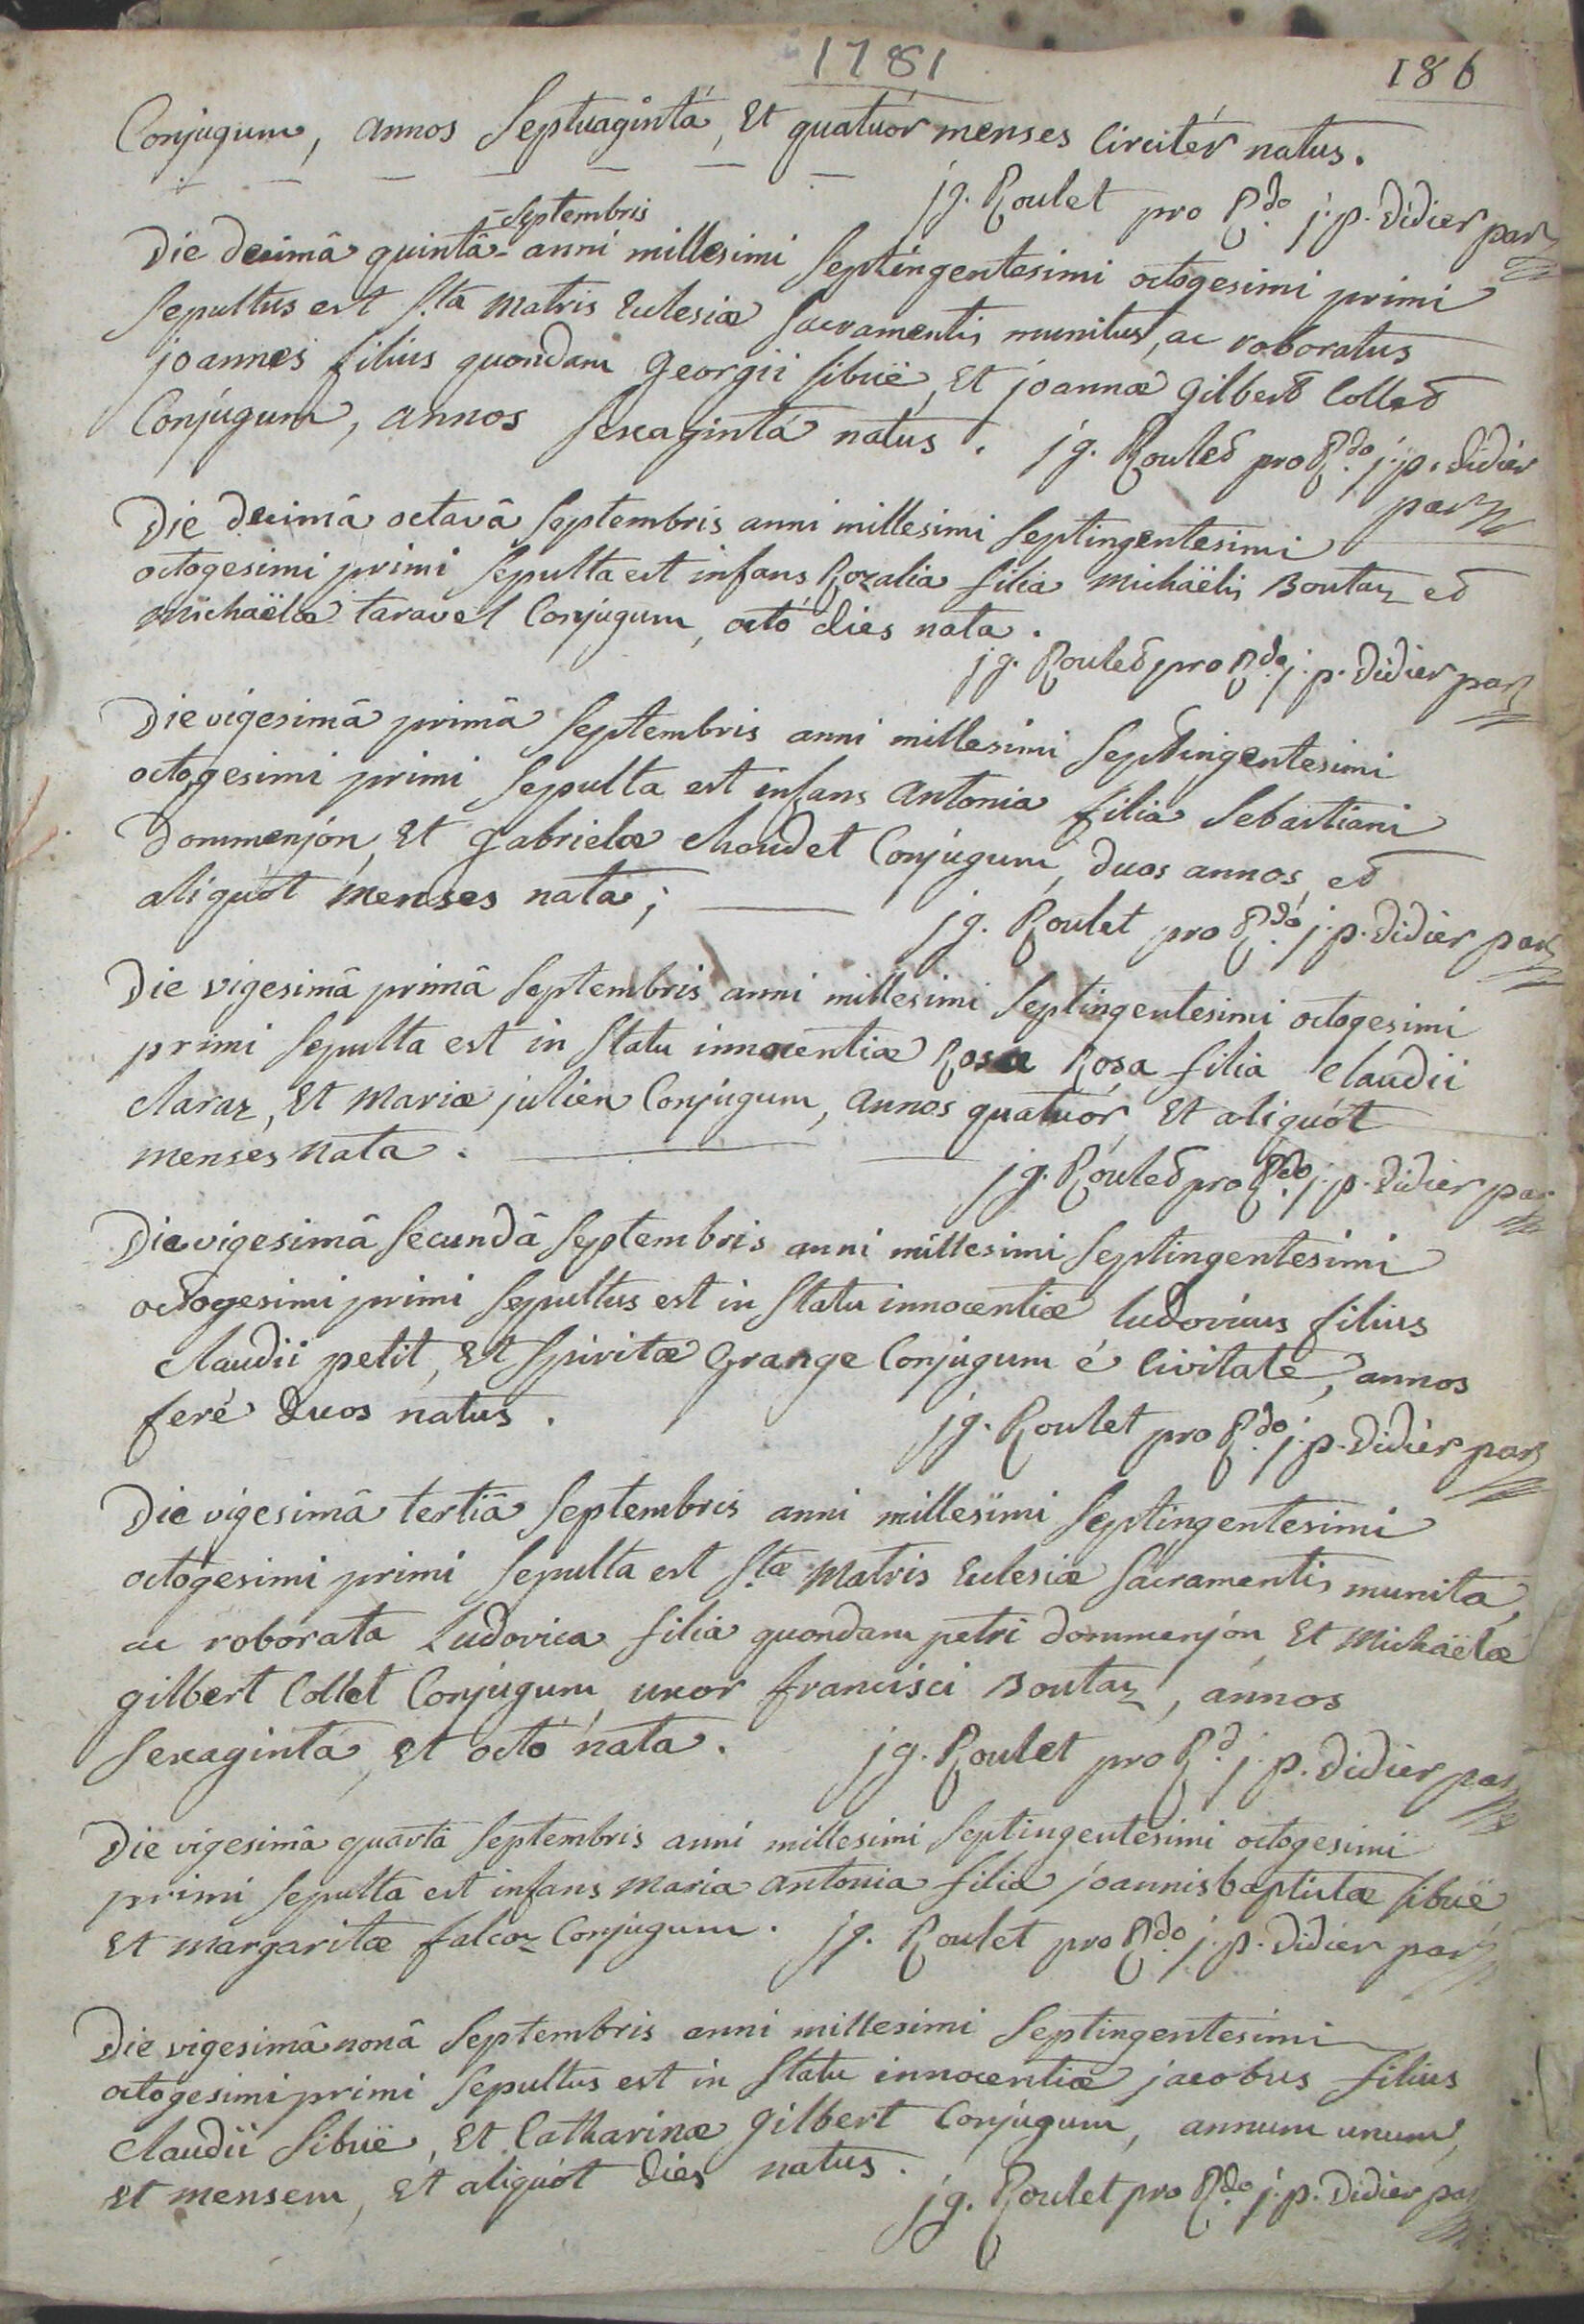 1781
186
Conjugum, annos Septuagintá, Et quatuór menses Circitér natus.
jg. Roulet pro R.do j. p. didier par
Septembris
Die decimâ quintâ anni millesimi Septingentesimi octogesimi primi
Sepultus est S.ta Matris Eclesiæ Sacramentis munitus, ac roboratus
joannes filius quondam Georgii Sibuë, Et joannæ Gilbert Collet
Conjugum, annos Sexagintá natus. jg. Roulet pro R.do j. p. didiér
par
Die decimâ octavâ Septembris anni millesimi Septingentesimi
octogesimi primi Sepulta est infans Rozalia filia Michaëlis Boutaz et
Michaëlæ taravel Conjugum, octó dies nata.
jg. Roulet pro R.do j. p. didier par
Die vigesimâ primâ Septembris anni millesimi Septingentesimi
octogesimi primi Sepulta est infans Antonia filia Sebastiani
Dommenjón, Et Gabrielæ Chaudet Conjugum, duos annos, et
aliquót menses nata;
jg. Roulet pro R.dó j. p. didier par
Die vigesimâ primâ Septembris anni millesimi Septingentesimi octogesimi
primi Sepulta est in Statu innocentiæ Rosa Rosa filia Claudii
Claraz, Et Mariæ julien Conjugum, annos quatuór, Et aliquót
menses nata.
jg. Roulet pro R.do j. p. didier par
Die vigesimâ Secundâ Septembris anni millesimi Septingentesimi
octogesimi primi Sepultus est in Statu innocentiæ ludovicus filius
Claudii petit, Et Spiritæ Grange Conjugum é Civitate, annos
feré duos natus.
jg. Roulet pro R.do j. p. didiér par
Die vigesimâ tertiâ Septembris anni millesimi Septingentesimi
octogesimi primi Sepulta est S.tæ Matris Eclesiæ Sacramentis munita,
ac roborata Ludovica filia quondam petri dommenjón, Et Michaëlæ
gilbert Collet Conjugum, uxor francisci Boutaz, annos
Sexagintá, Et octó nata.
jg. Roulet pro R.d j. p. didier par
Die vigesimâ quartâ Septembris anni millesimi Septingentesimi octogesimi
primi Sepulta est infans Maria Antonia filia joannisbaptistæ Sibuë
Et Margaritæ falcoz Conjugum. jg. Roulet pro R.do j. p. didier par
Die vigesimâ nonâ Septembris anni millesimi Septingentesimi
octogesimi primi Sepultus est in Statu innocentiæ jacobus filius
Claudii Sibuë, Et Catharinæ Gilbert Conjugum, annum unum,
Et mensem, Et aliquót dies natus.
jg. Roulet pro R.do j. p. didier par